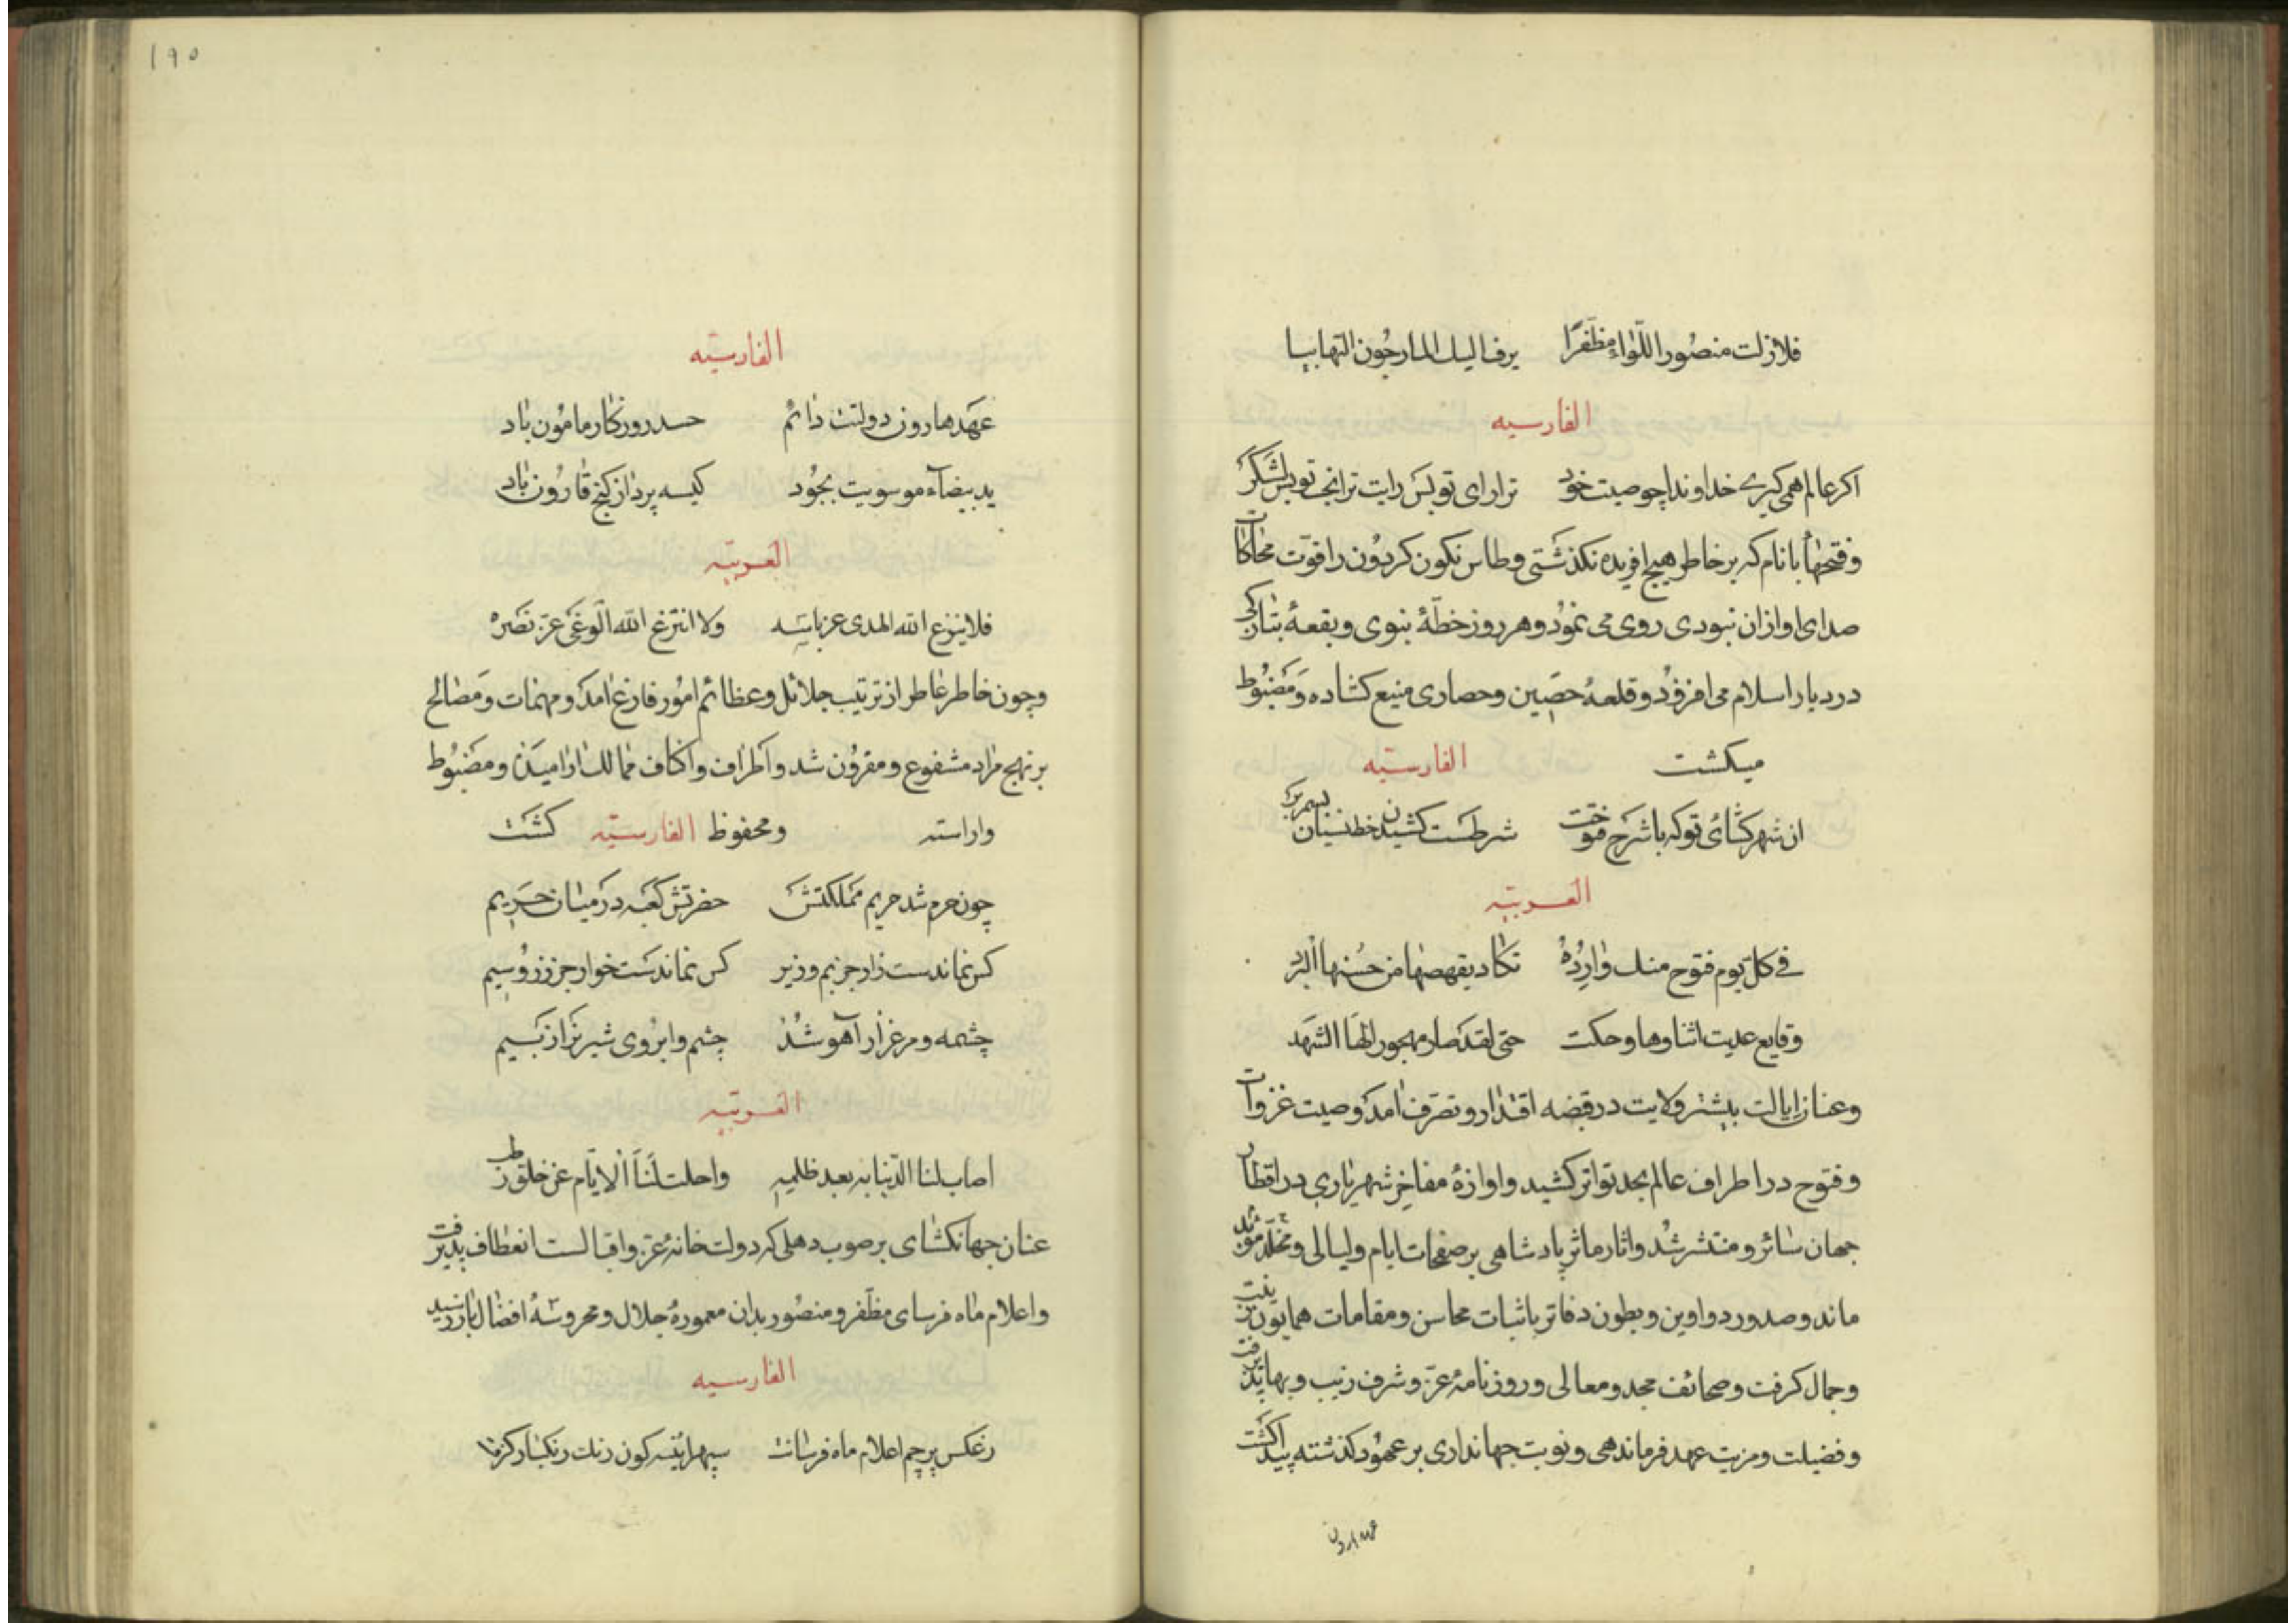 فلازلت منصور اللواء مظفرا يرف اليك المارجون التهابيا
الفارسيه
اكر عالم همى كيرى خداوندا چو صيت خود ترا راى تو بس رايت ترا بخت تو بس لشكر
و فتحهاء بانام كه بر خاطر هيچ افريده نكذشتى و طاس نكون كردون را قوت محاكات
صداى اوازان نبودى روى مى نمود و هر روز خطّهٔ بنوى و بقعهٔ بتازكى
در ديار اسلام مى افزود و قلعهٔ حصين و حصارى منيع كشاده و مضبوط
ميكشت الفارسيّه
ان شهر كشائى تو كه با شرح فتوحت شرطست كشيدن خط نسيان بسمر بر
العربيّه
فى كلّ يوم فتوح منك واردة تكاد يفهمها من حسنها البرد
وقايع عذبت اثناوها وحكت حتى لقد صار مهجورا لها الشهد
و عنان ايالت بيشتر ولايت در قبضه اقتدار و تصرف امد و صيت غزوات
و فتوح در اطراف عالم بحد تواتر كشيد و اوازهٔ مفاخر شهريارى در اقطار
جهان سائر و منتشر شد و اثار ماثر پادشاهى بر صفحات ايام و ليالى و مخلّد مؤبد
ماند و صدور دواوين و بطون دفاتر باثبات محاسن و مقامات همايون زينت
و جمال كرفت و صحائف مجد و معالى و روزنامهٔ عزّ و شرف زيب و بها پذيرفت
و فضيلت و مزيت عهد فرماندهى و نوبت جهاندارى بر عهود كذشته پيدا كشت
عهد هارون
١٩٥
الفارسيّه
عهد هارون دولتت دائم حسد روزكار مامون باد
يد بيضاء موسويت بجود كيسه پرداز كنج قارون باد
العربيّه
فلا ينزع الله المدى عز باسه ولا انتزع الله الوغى عز نصره
و چون خاطر عاطر از ترتيب جلائل و عظائم امور فارغ امد و مهمات و مصالح
بر نهج مراد مشفوع و مقرون شد و اطراف و اكناف ممالك اراميده و مضبوط
واراسته و محفوظ الفارسيّه كشت
چون حرم شد حريم مملكتش حضرتش كعبه در ميان حريم
كس نماندست زار جز بم و زير كس نماندست خوار جز زر و سيم
چشمه و مرغزار آهو شد چشم و ابروى شير نر از بيم
العربيّه
اصاب لنا الدنيا به بعد ظلمه واحلت لنا الايّام عن خلق
عنان جهانكشاى بر صوب دهلى كه دولت خانهٔ عزّ و اقبالست انعطاف پذيرفت
و اعلام ماه فرساى مظفّر و منصور بدان معمورهٔ جلال و محروسهٔ افضال باز رسيد
الفارسيه
ز عكس پرچم اعلام ماه فرسانت سپهر اينه كون رنك زنكبار كرفت